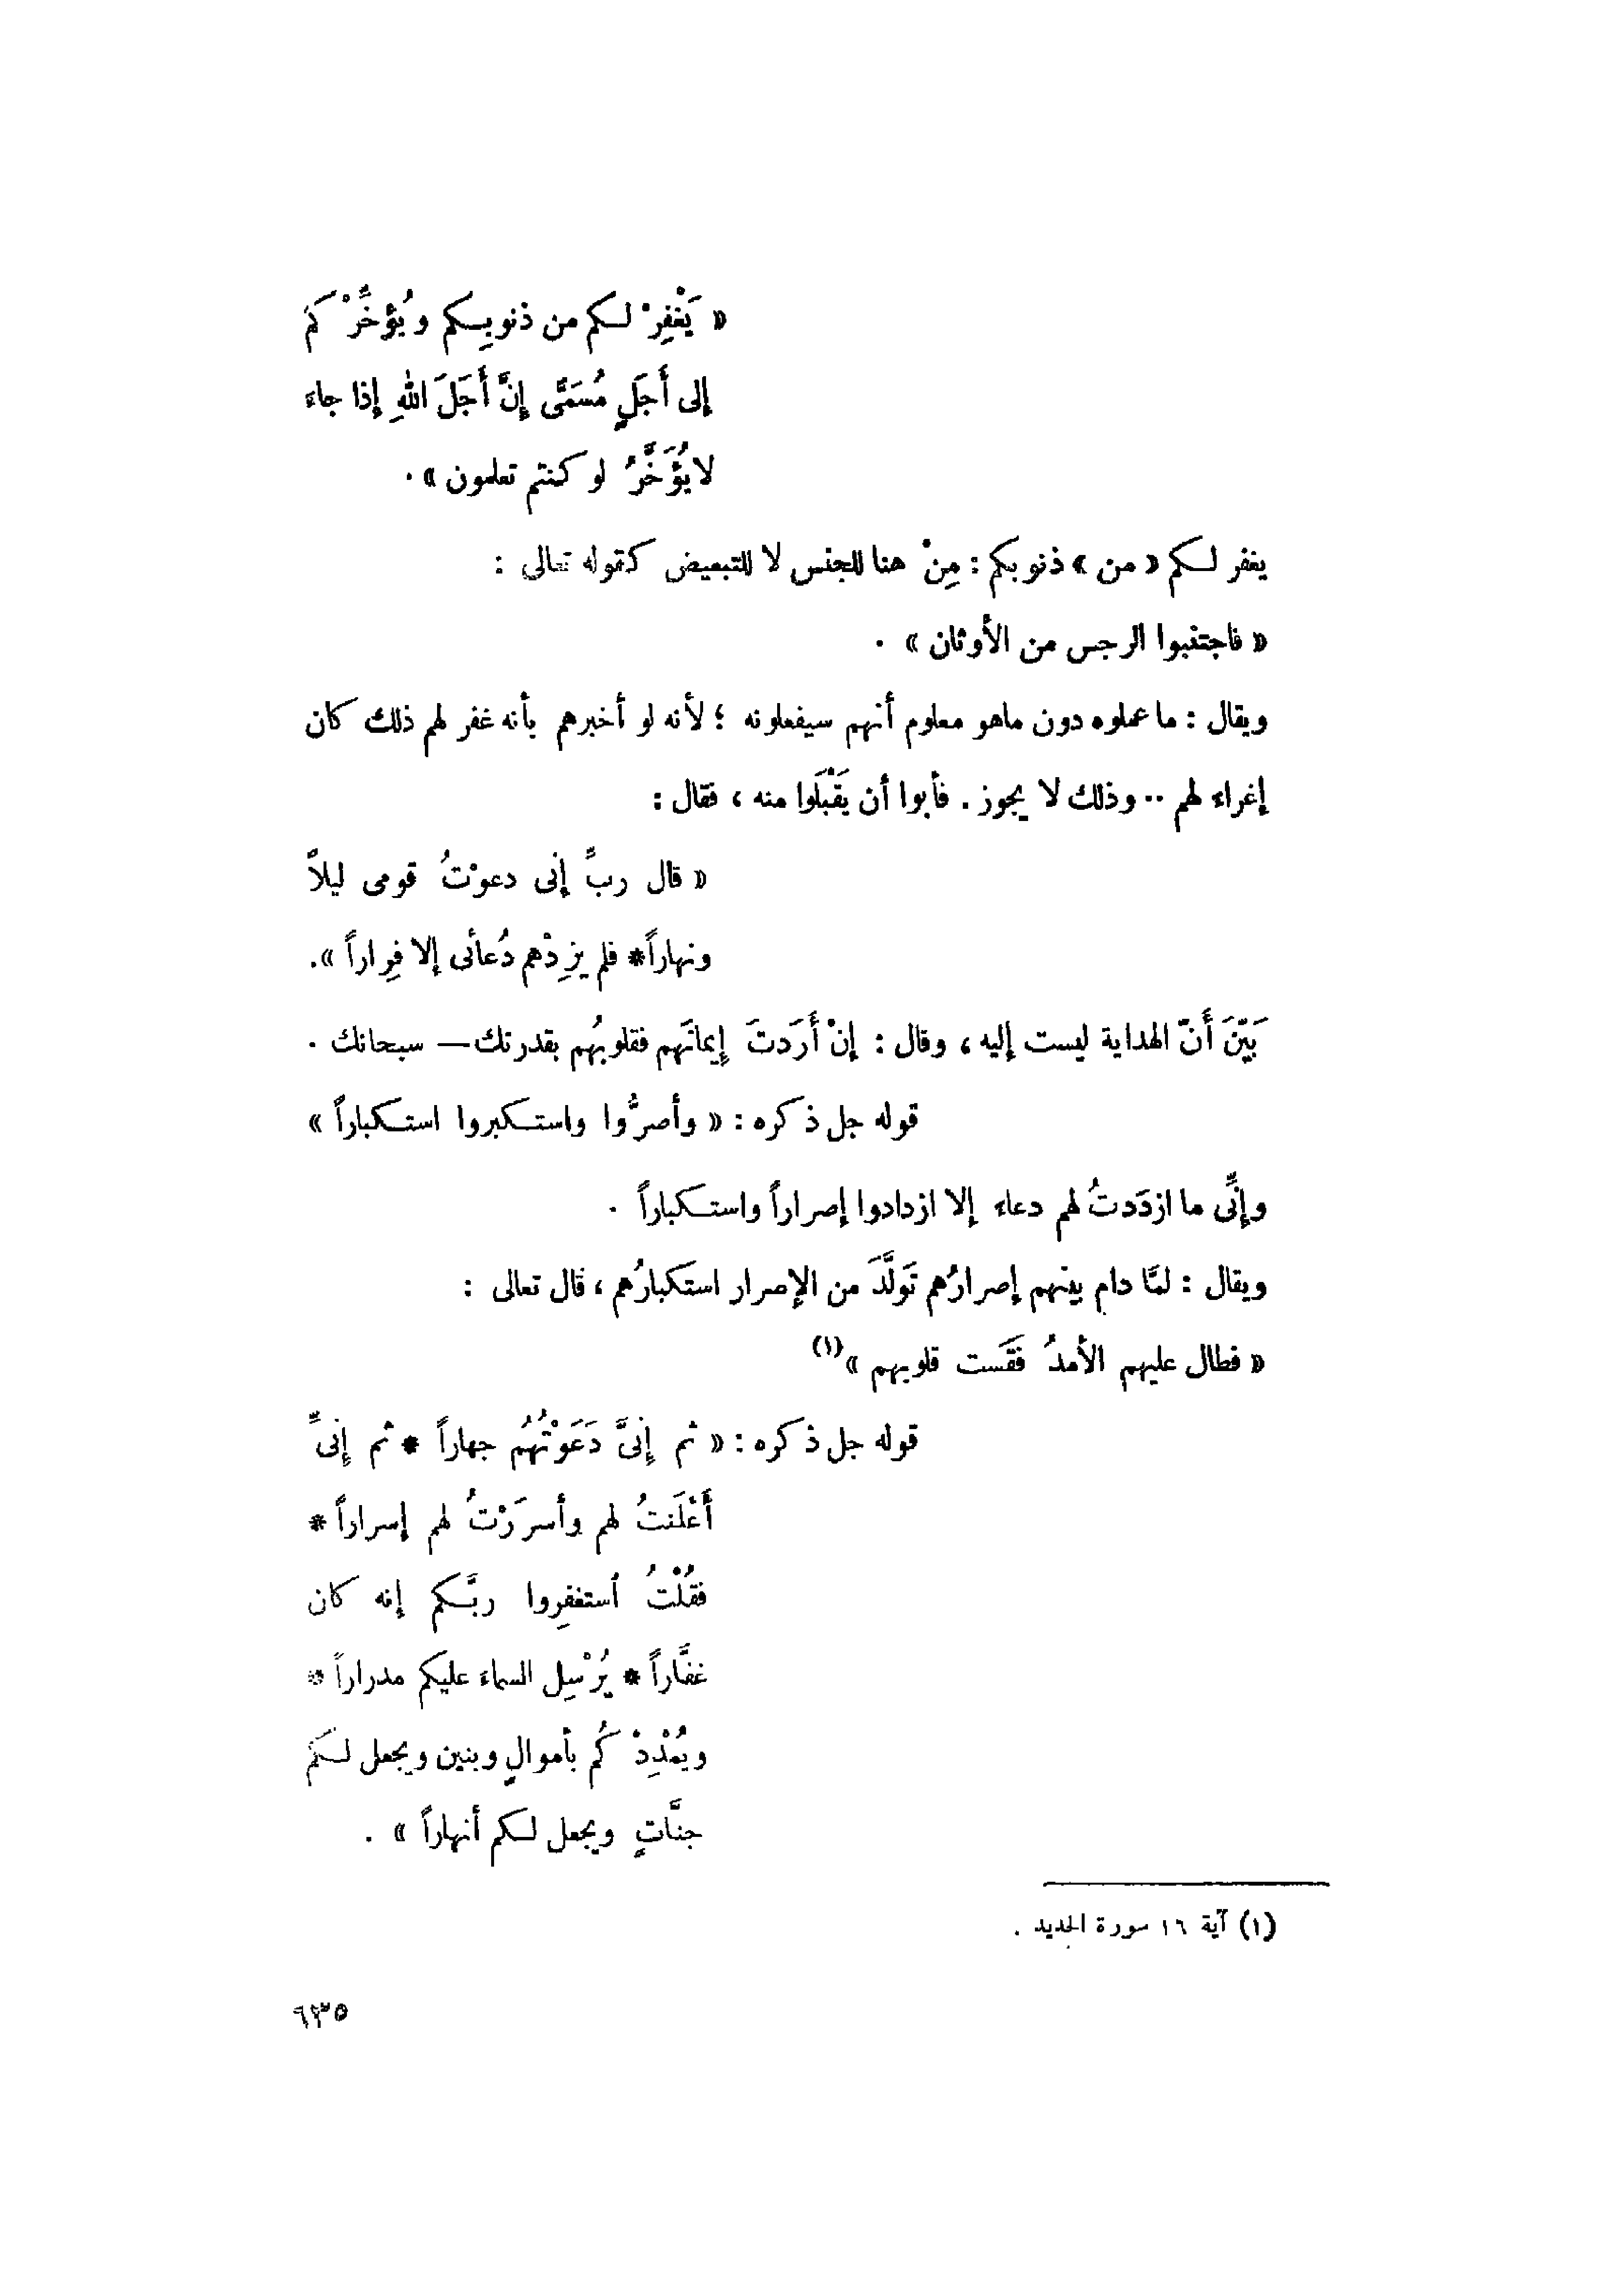 « يَغْفِرْ لكم من ذنوبِكم ويُؤخِّرْكم
إلى أَجَلٍ مُسَمًّى إِنَّ أَجَلَ اللهِ إذا جاءَ
لا يُؤَخَّرُ لو كنتم تعلمون » .
يغفر لكم « من » ذنوبكم : مِنْ هنا للجنس لا للتبعيض كقوله تعالى :
« فاجتنبوا الرجس من الأوثان » .
ويقال : ما عملوه دون ماهو معلوم أنهم سيفعلونه ؛ لأنه لو أخبرهم بأنه غفر لهم ذلك كان
إغراء لهم .. وذلك لا يجوز . فأبوا أن يَقْبَلوا منه ، فقال :
« قال ربِّ إنى دعوْتُ قومى ليلاً
ونهاراً * فلم يزِدْهم دُعائى إلا فِراراً ».
بَيّنَ أَنّ الهداية ليست إليه ، وقال : إنْ أَرَدتَ إيمانَهم فقلوبُهم بقدرتك — سبحانك .
قوله جل ذكره : « وأصرُّوا واستكبروا استكباراً »
وإنِّى ما ازدَدتُ لهم دعاء إلا ازدادوا إصراراً واستكباراً .
ويقال : لمَّا دام بينهم إصرارُهم تَولَّدَ من الإصرار استكبارُهم ، قال تعالى :
« فطال عليهم الأمدُ فقَست قلوبهم »(١)
قوله جل ذكره : « ثم إنىِّ دَعَوْتُهُم جهاراً * ثم إنىِّ
أَعْلَنتُ لهم وأسرَرْتُ لهم إسراراً *
فقُلْتُ استغفِروا ربَّكم إنه كان
غفَّاراً * يُرْسِل السماءَ عليكم مدراراً *
ويُمْدِدْكُم بأموالٍ وبنين ويجعل لكم
جنَّاتٍ ويجعل لكم أنهاراً » .
(١) آية ١٦ سورة الحديد .
٦٣٥